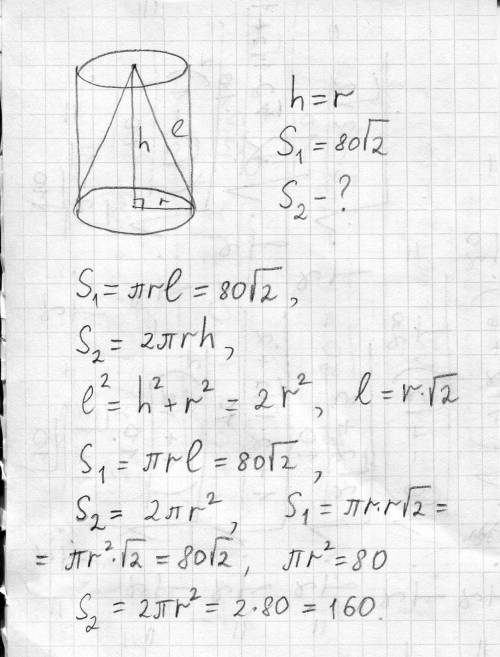 h = r
S₁ = 80√2
S₂ - ?
h
l
r
S₁ = πrl = 80√2,
S₂ = 2πrh,
l² = h² + r² = 2r², l = r·√2
S₁ = πrl = 80√2,
S₂ = 2πr², S₁ = πr·r√2 =
= πr²·√2 = 80√2, πr² = 80
S₂ = 2πr² = 2·80 = 160.